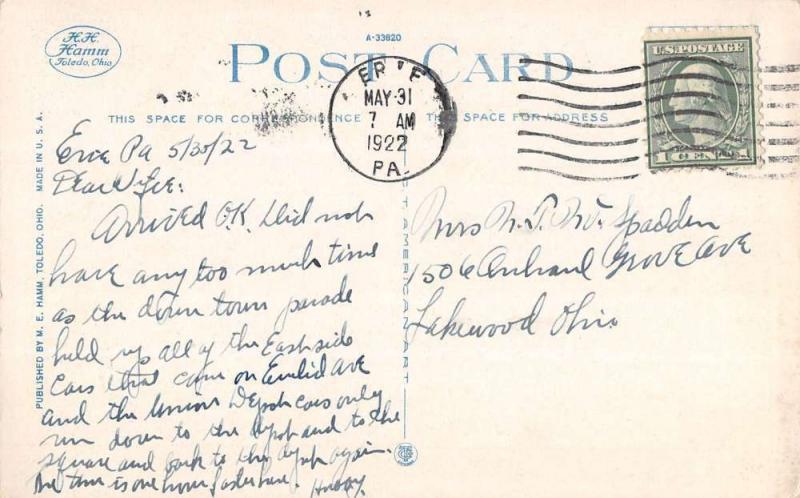 H.H.
Hamm
Toledo, Ohio
A-33820
POST CARD
THIS SPACE FOR CORRESPONDENCE
THIS SPACE FOR ADDRESS
ERIE
MAY 31
7 AM
1922
PA.
U.S. POSTAGE
1 CENT 1
PUBLISHED BY M. E. HAMM, TOLEDO, OHIO. MADE IN U. S. A.
Erie Pa 5/30/22
Dear Wife:
Arrived O.K. Did not
have any too much time
as the down town parade
held up all of the East side
cars that came on Euclid Ave
and the Union Depot cars only
run down to the depot and to the
square and back to the depot again.
The time is one hour faster here. Hubby.
AMERICAN ART
Mrs N. T. Mc Spadden
1506 Orchard Grove Ave
Lakewood Ohio